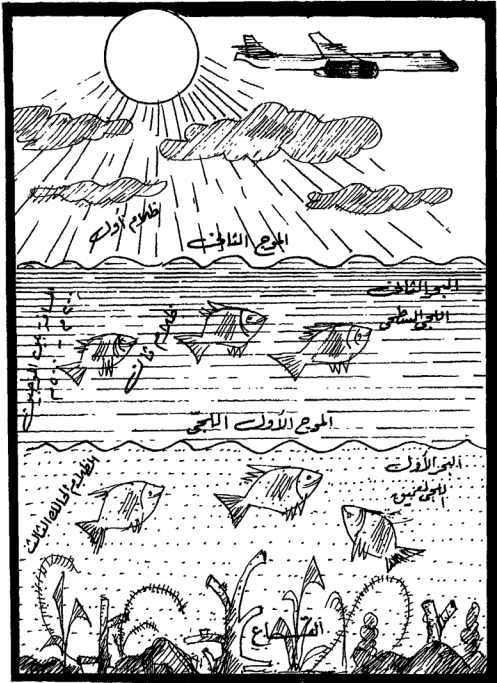 إظلام أول
الموج الثاني
البحر الثاني
اللجي السطحي
ظلام ثان
الموج الأول اللجي
البحر الأول
اللجي العميق
الظلام الحالك الثالث
القاع